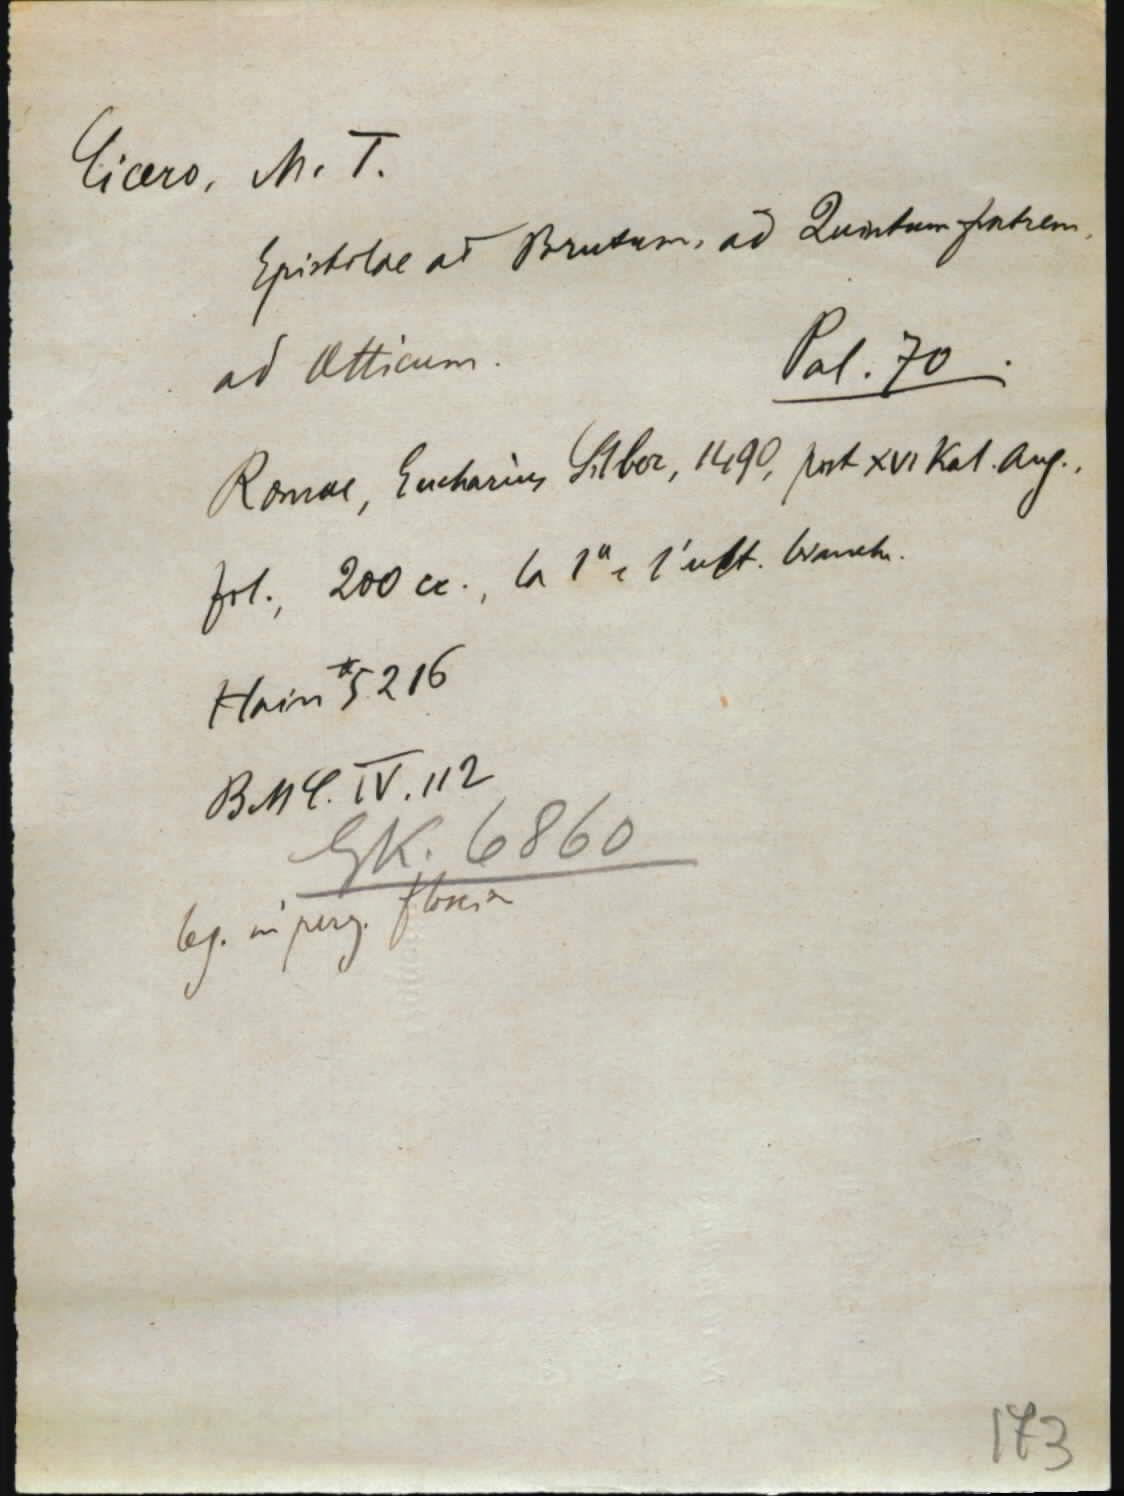 Cicero, M. T.
Epistolae ad Brutum, ad Quintum fratrem,
ad Atticum.
Pal. 70.
Romae, Eucharius Silber, 1490, post XVI Kal. Aug.,
fol., 200 cc., la 1ª e l'ult. bianche.
Hain *5216
BMC. IV. 112
GK. 6860
leg. in perg. floscia
173